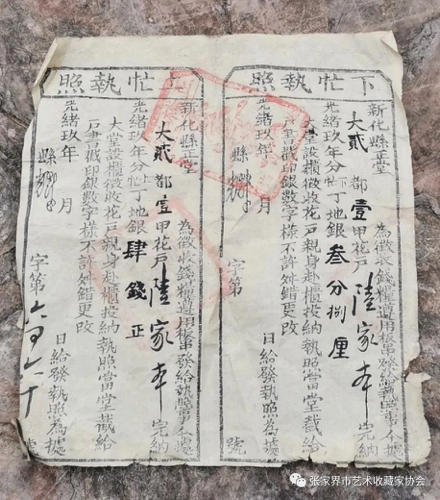 下忙執照
新化縣正堂 為徵收錢糧遵用板串發給執照事今據
大貳都壹甲花戶陸家本完納
光緒玖年分下忙丁地銀叁分捌厘
大堂設櫃徵收花戶親身赴櫃投納執照當堂截給
戶書戳印銀數字樣不許姓錯更改
光緒玖年 月 日給發執照為據
縣 字第 號
上忙執照
新化縣正堂 為徵收錢糧遵用板串發給執照事今據
大貳都壹甲花戶陸家本完納
光緒玖年分上忙丁地銀肆錢正
大堂設櫃徵收花戶親身赴櫃投納執照當堂截給
戶書戳印銀數字樣不許姓錯更改
光緒玖年 月 日給發執照為據
縣 字第六百六十號
張家界市艺术收藏家协会